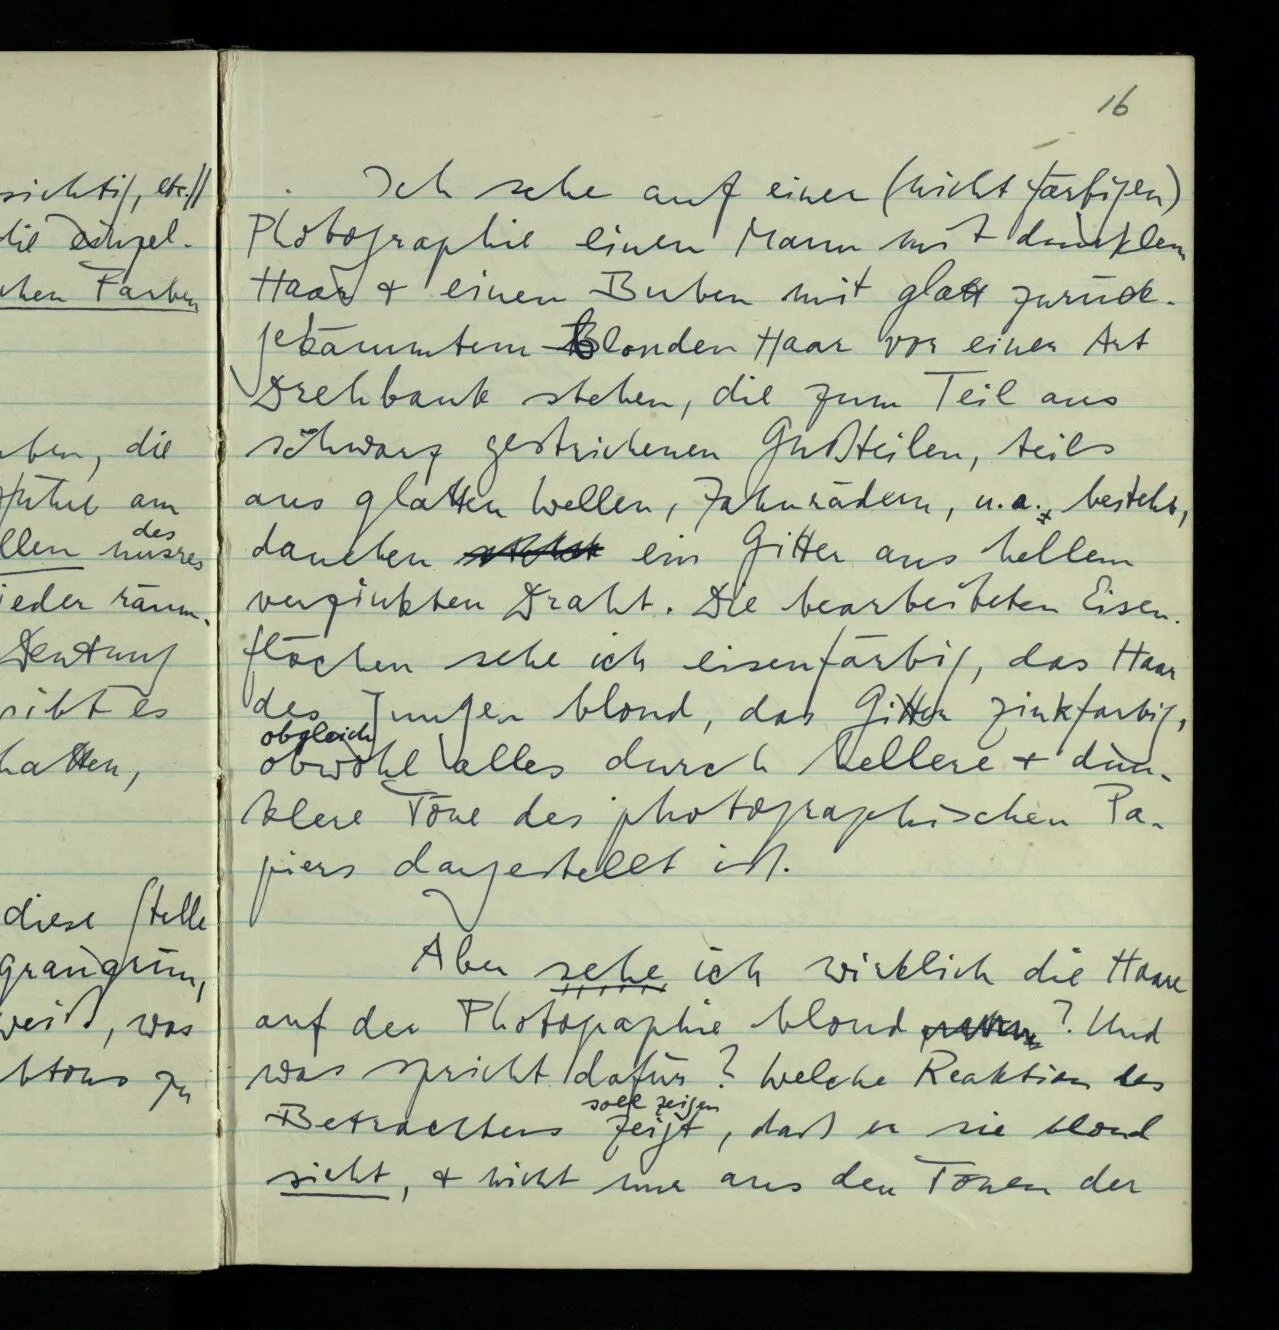 16
sichtig, etc.//
die einzel-
chen Farben
ben, die
am
des
llen unsres
ieder räum-
Deutung
gibt es
hatten,
diese Stelle
graugrün,
weiß, was
btons zu
Ich sehe auf einer (nicht färbigen)
Photographie einen Mann mit dunklem
Haar & einen Buben mit glatt zurück-
gekämmtem blonden Haar vor einer Art
Drehbank stehen, die zum Teil aus
schwarz gestrichenen Gußteilen, teils
aus glatten Wellen, Zahnrädern, u.a., besteht,
daneben steht ein Gitter aus hellem
verzinkten Draht. Die bearbeiteten Eisen-
flächen sehe ich eisenfärbig, das Haar
des Jungen blond, das Gitter zinkfarbig,
obgleich
obwohl alles durch hellere & dun-
klere Töne des photographischen Pa-
piers dargestellt ist.
Aber sehe ich wirklich die Haare
auf der Photographie blond ? Und
was spricht dafür? Welche Reaktion des
soll zeigen
Betrachters zeigt, daß er sie blond
sieht, & nicht nur aus den Tönen der